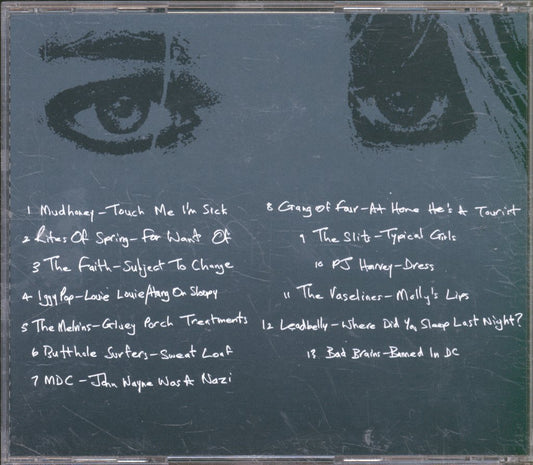 1 Mudhoney - Touch Me I'm Sick
2 Rites Of Spring - For Want Of
3 The Faith - Subject To Change
4 Iggy Pop - Louie Louie/Hang On Sloopy
5 The Melvins - Gluey Porch Treatments
6 Butthole Surfers - Sweat Loaf
7 MDC - John Wayne Was A Nazi
8 Gang of Four - At Home He's A Tourist
9 The Slits - Typical Girls
10 PJ Harvey - Dress
11 The Vaselines - Molly's Lips
12 Leadbelly - Where Did You Sleep Last Night?
13 Bad Brains - Banned In DC